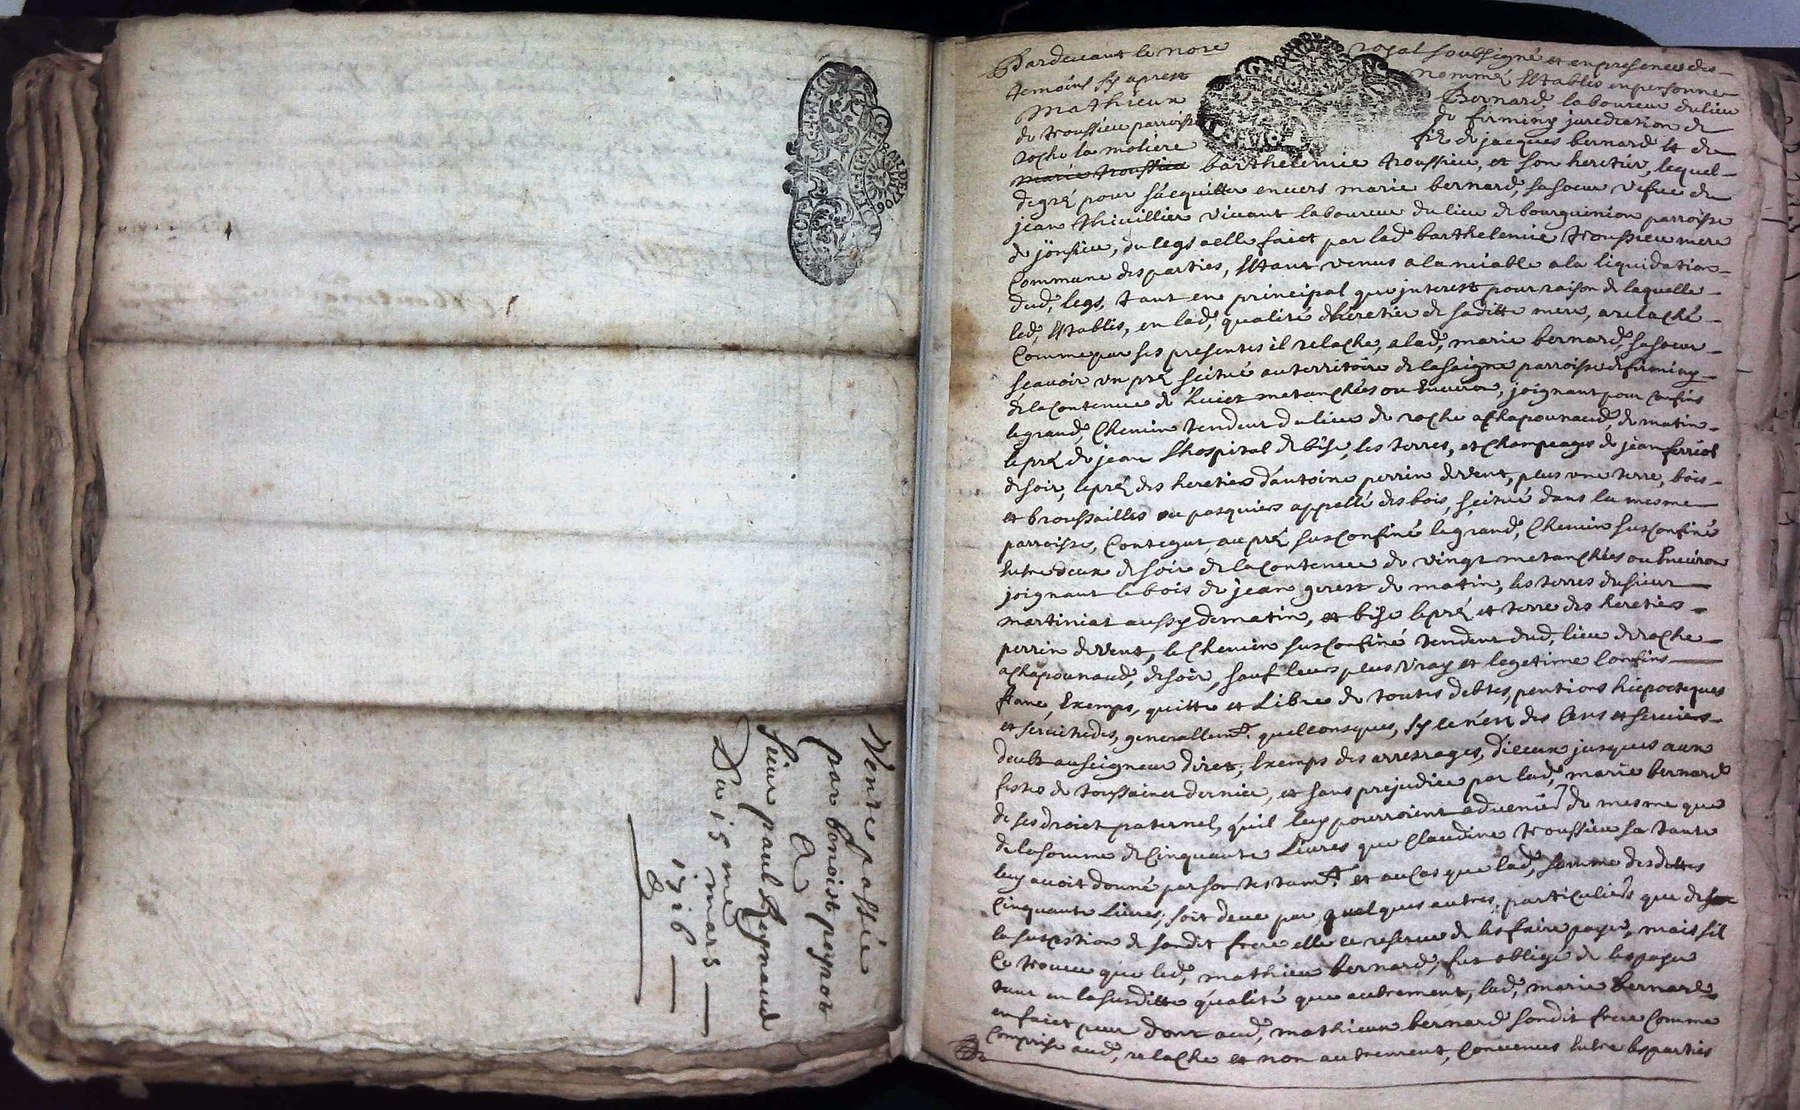 Vente passée
par benoist peyrot
A
sieur paul Reynaud
Du 15me mars
1716
Pardevant le nore royal soubsigné et en presences des
temoins sy apres nommés Estably en personne
Mathieux Bernard laboureur du lieu
de troussieu parroisse de firminy jurediction de
roche la moliere fils de jacques bernard et de
marie troussieu barthelemie troussieu, et son heretier, lequel
de gré pour s'acquitter envers marie bernard, sa soeur vefve de
jean thivillier vivant laboureur du lieu de bourguinion parroisse
de jonsieu, du legs a elle faict par lad. barthelemie troussieu mere
commune des parties, Estant venus a lamiable a la liquidation
dud. legs, tant en principal que jnterest pour raison de laquelle
led. Estably, en lad. qualité dheretier de saditte mere, a relaché
comme par ses presentes il relache, a lad. marie bernard, sa soeur
scavoir un pré scitué au territoire de lasaigne parroisse de firminy
de la contenue de huict metanchées ou Environ, joignant pour confins
le grand chemin tendent du lieu de roche a chaponnaud, de matin
le pré de jean lhospital de bise, les terres, et champeages de jean ferriol
de soir, le pré des heretiers dantoine perrin de vent, plus une terre, bois
et broussailles ou pasquiers appellé des bois, scitué dans la mesme
parroisse, contegut, au pré susconfiné le grand chemin susconfiné
Entre deux de soir de la contenue de vingt metanchées ou Environ
joignant le bois de jean gerest de matin, les terres du sieur
martiniat aussy de matin, et bise le pré et terre des heretiers
perrin de vent, le chemin susconfiné tendent dud. lieu de roche
a chaponnaud, de soir, sauf leurs plus vray et legetime confins
franc, Exemps, quitte et Libre de toutes debtes, pentions hiepocteques
et servitudes, generallemt. quelconques, sy ce n'est des Cens et servis
deubt au seigneur direct, Exemps des arrerages, diceux jusques a une
feste de toussainct dernier, et sans prejudice par lad. marie bernard
de ses droict paternel, qu'il luy pourroient advenir de mesme que
de la somme de Cinquante Livres que Claudine troussieu sa tante
luy avoit donné par son testamt. et au cas que lad. somme desdittes
Cinquante Livres, soit deue par quelques autres particuliers que de
la sucestion de sondit frere elle ce reserve de les faire payer, mais sil
Ce trouve que led. mathieu bernard, fut obligé de les payer
tant en la susditte qualité que autrement, lad. marie bernard
en faict pur dont aud. mathieux bernard sondit frere comme
comprise aud. relache et non autrement, convenus Entre les parties